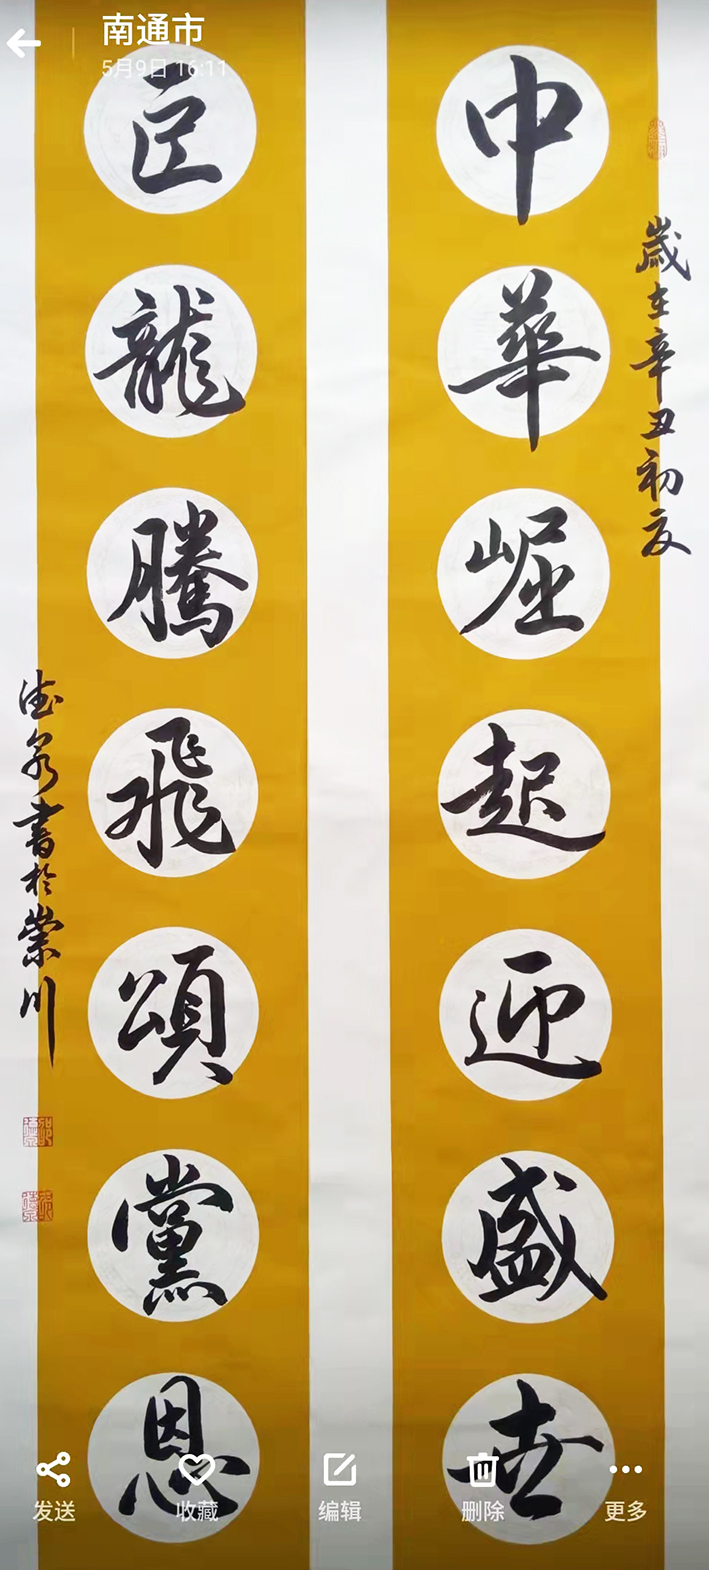 南通市
5月9日 16:11
歲在辛丑初夏
中華崛起迎盛世
巨龍騰飛頌黨恩
德泉書於崇川
发送
收藏
编辑
删除
更多